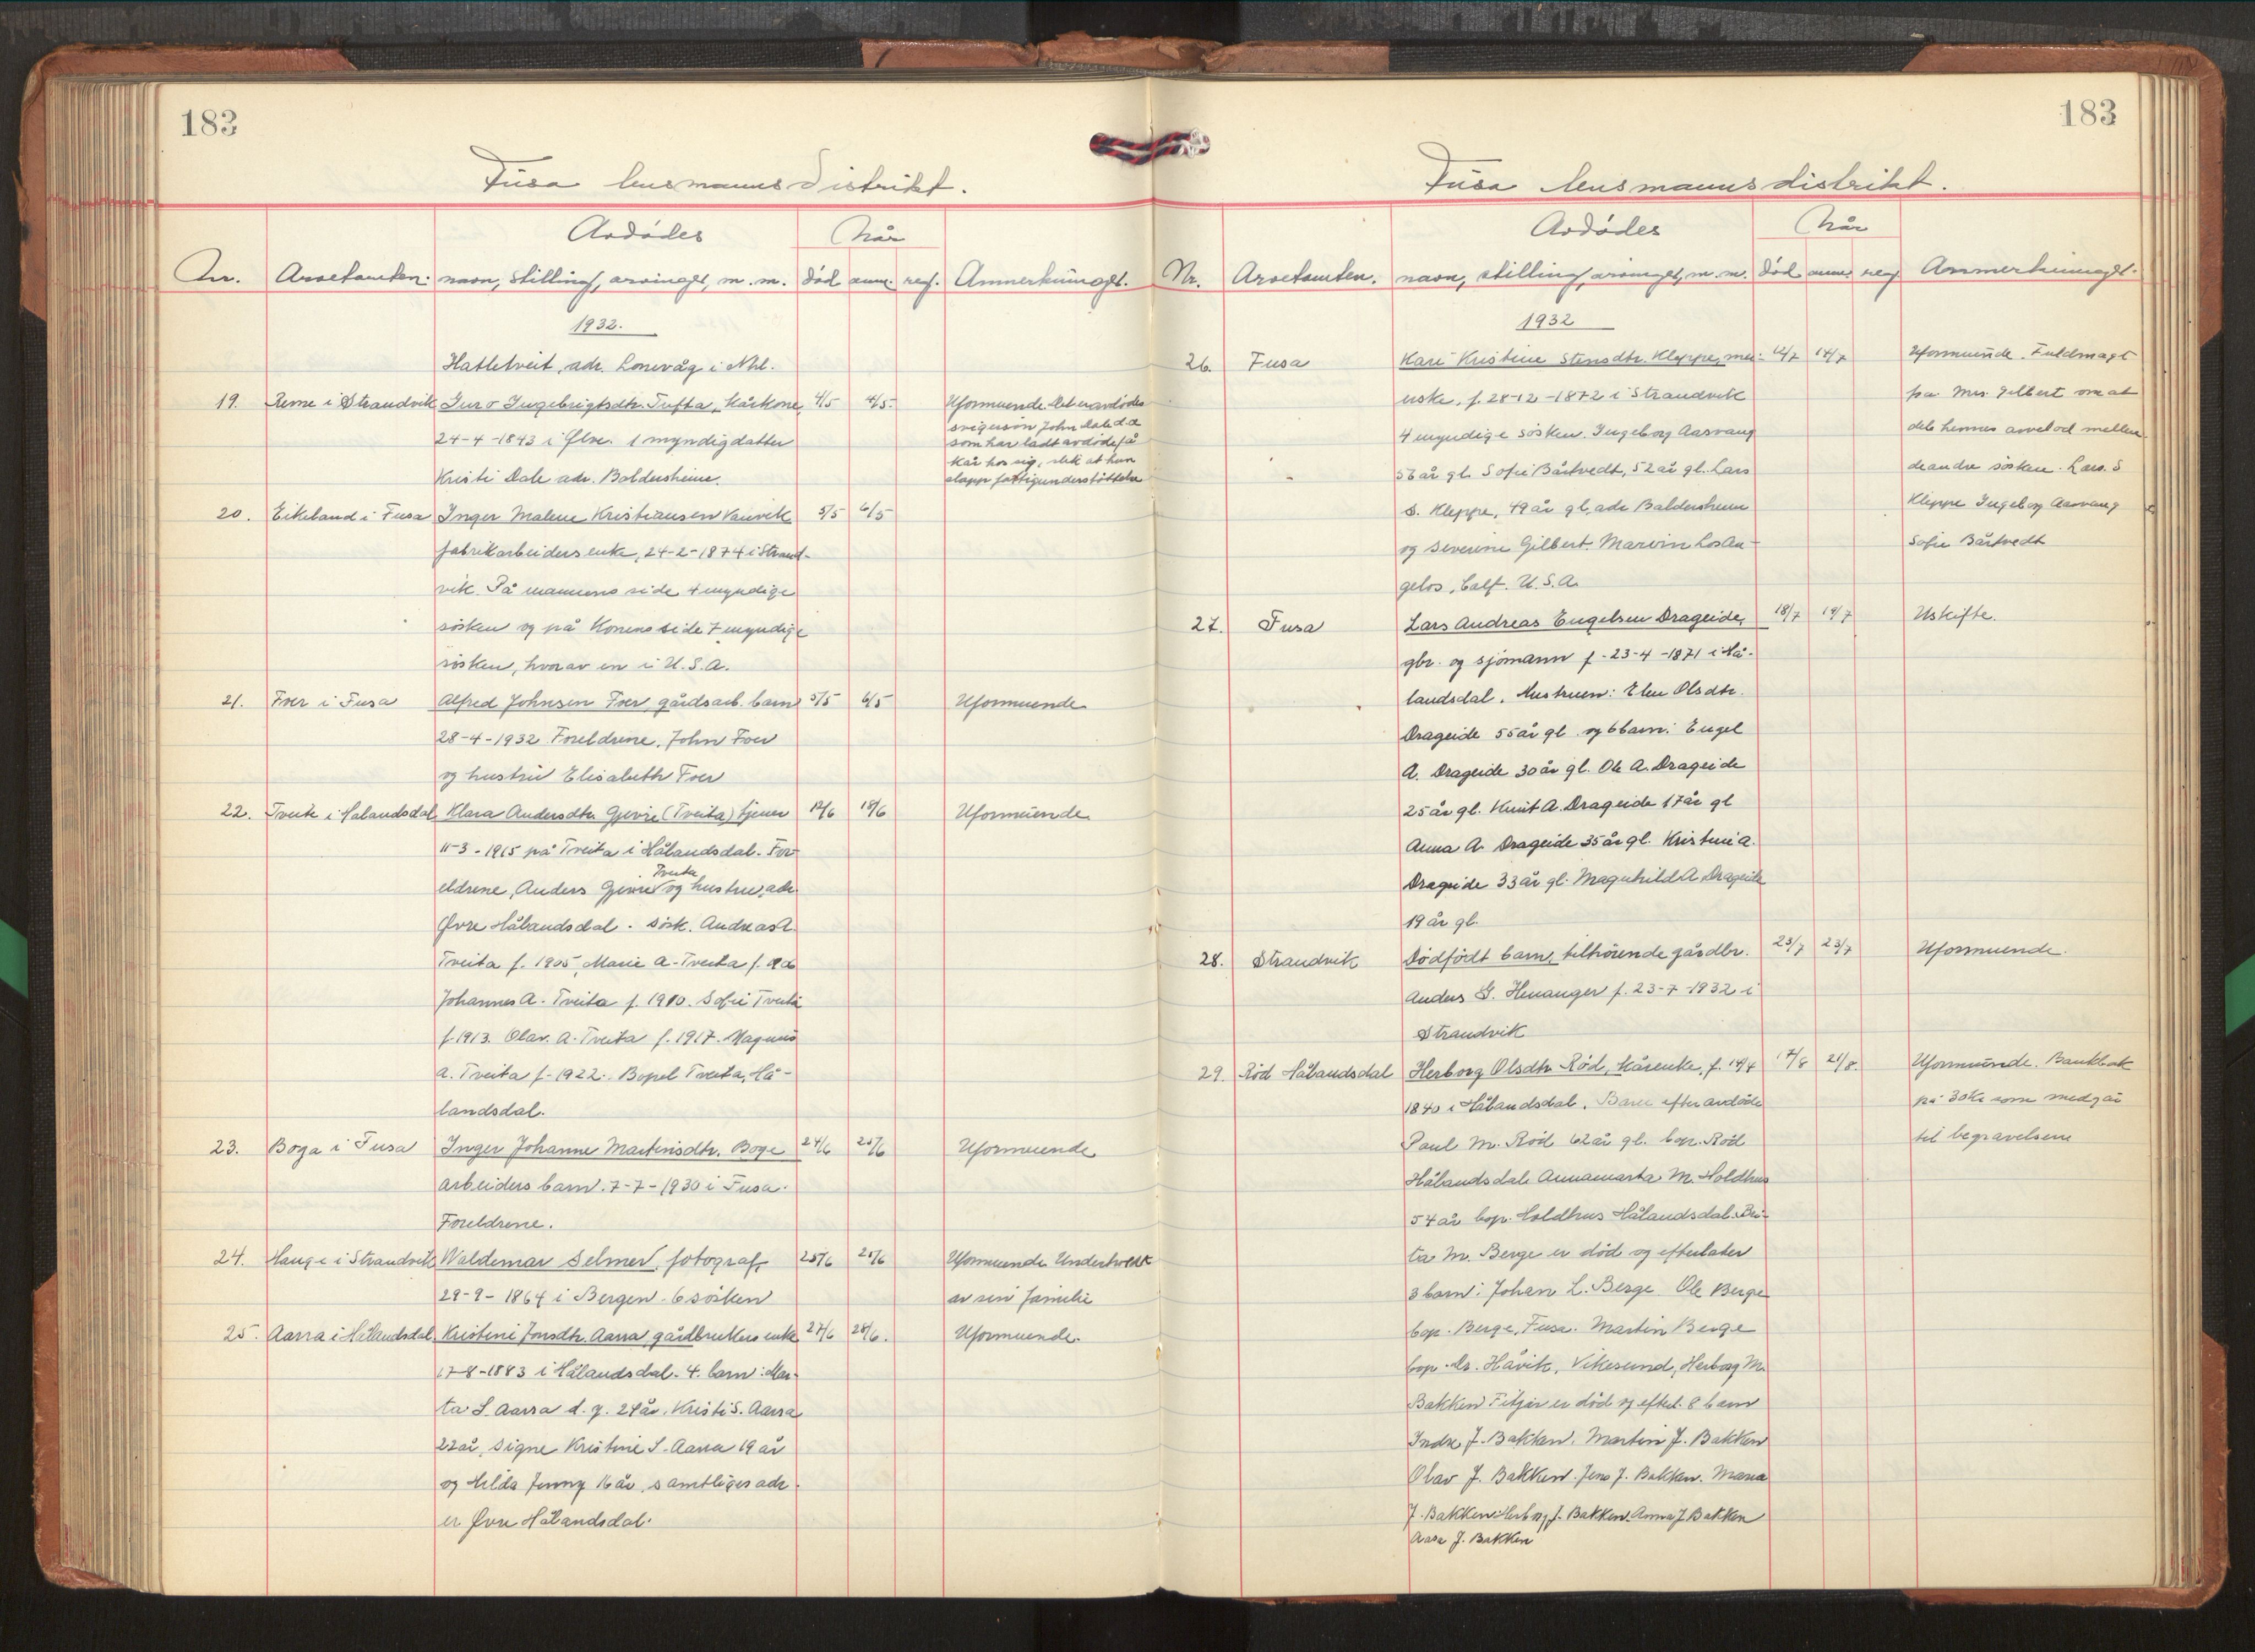 183
Fusa lensmannsdistrikt.
Avdødes
Når
Nr. Arvetomten. navn, stilling, arvinger, m. m. død anm. reg. Anmerkninger.
1932.
Hatletveit, adr. Lonevåg i Nhl.
19. Reme i Strandvik Guro Ingebrigtsdtr. Tufta, kårkone, 4/5 4/5. Uformuende. Det er avdødes
svigersøn John Dale d.e.
24-4-1843 i Ølve. 1 myndig datter som har ladt avdøde få
kår hos sig, slik at hun
Kristi Dale adr. Baldersheim. slapp fattigunderstøttelse
20. Eikeland i Fusa Inger Malene Kristiansen Vanvik 5/5 6/5
fabrikarbeiders enke, 24-2-1874 i Strand-
vik. På mannens side 4 myndige
søsken og på konens side 7 myndige
søsken, hvorav en i U.S.A.
21. Foer i Fusa Alfred Johnsen Foer, gårdsarb. barn 5/5 6/5 Uformuende
28-4-1932. Foreldrene, John Foer
og hustru Elisabeth Foer
22. Tveite i Hålandsdal Klara Andersdtr. Gjeire (Tveita) tjener 12/6 18/6 Uformuende
11-3-1915 på Tveita i Hålandsdal. For-
Tveita
eldrene, Anders Gjeire og hustru, adr.
Øvre Hålandsdal. søsk. Andreas A.
Tveita f. 1905, Marie A. Tveita f.
Johannes A. Tveita f. 1910. Sofie Tveita
f. 1913. Olav. A. Tveita f. 1917. Magnus
A. Tveita f. 1922. Bopel Tveita, Hå-
landsdal.
23. Boga i Fusa Inger Johanne Martinsdtr. Boge 24/6 25/6 Uformuende
arbeiders barn. 7-7-1930 i Fusa.
Foreldrene.
24. Hauge i Strandvik Waldemar Selmer, fotograf, 25/6 25/6 Uformuende Underholdt
29-9-1864 i Bergen. 6 søsken av sin familie
25. Aarra i Hålandsdal. Kristine Jonsdtr. Aarra gårdbrukers enke 27/6 28/6. Uformuende.
17-8-1883 i Hålandsdal. 4. barn: Mar-
ta S. Aarra d.y. 24 år, Kristi S. Aarra
22 år, Signe Kristine S. Aarra 19 år
og Hilda Jenny 16 år, samtliges adr.
er Øvre Hålandsdal.
183
Fusa lensmannsdistrikt.
Avdødes
Når
Nr. Arvetomten. navn, stilling, arvinger, m. m. død anm. reg. Anmerkninger.
1932
26. Fusa Kari Kristine Stensdtr. Kleppe, mei- 12/7 14/7 Uformuende. Fuldmagt
erske, f. 28-12-1872 i Strandvik fra Mrs. Gilbert om at
4 myndige søsken. Ingeborg Aasvang dele hennes arvelod mellem
56 år gl. Sofie Båtvedt, 52 år gl. Lars de andre søsken. Lars. S
S. Kleppe, 49 år gl, adr. Baldersheim Kleppe Ingeborg Aasvang
og Severine Gilbert. Marvin Los An- Sofie Båtvedt
gelos, Calf. U.S.A.
27. Fusa Lars Andreas Engelsen Drageide, 18/7 19/7 Uskifte.
gbr. og sjømann f. 23-4-1871 i Hå-
landsdal. Hustruen: Elen Olsdtr.
Drageide 55 år gl. og 6 barn: Engel
A. Drageide 30 år gl. Ole A. Drageide
25 år gl. Knut A. Drageide 17 år gl
Anna A. Drageide 35 år gl. Kristine A.
Drageide 33 år gl. Magnhild A Drageide
19 år gl.
28. Strandvik Dødfødt barn, tilhørende gårdbr. 23/7 23/7 Uformuende.
Anders G. Henanger f. 23-7-1932 i
Strandvik
29. Rød Hålandsdal Herborg Olsdtr. Rød, kårenke, f. 14/4 17/8 21/8. Uformuende. Bankbok
1840 i Hålandsdal. Barn efter avdøde på 30 kr som medgår
Paul M. Rød 62 år gl. bop. Rød til begravelsen
Hålandsdal. Annamarta M. Holdhus
54 år bop. Holdhus Hålandsdal. Bri-
ta M. Berge er død og efterlater
3 barn: Johan L. Berge Ole Berge
bop. Berge, Fusa. Martin Berge
bop. Håvik, Vikesund, Herborg M.
Bakken Fitjar er død og efterl. 8 barn
Indre J. Bakken. Martin J. Bakken
Olav J. Bakken. Jens J. Bakken. Maria
J. Bakken. Herborg J. Bakken. Anna J Bakken
Aasa J. Bakken